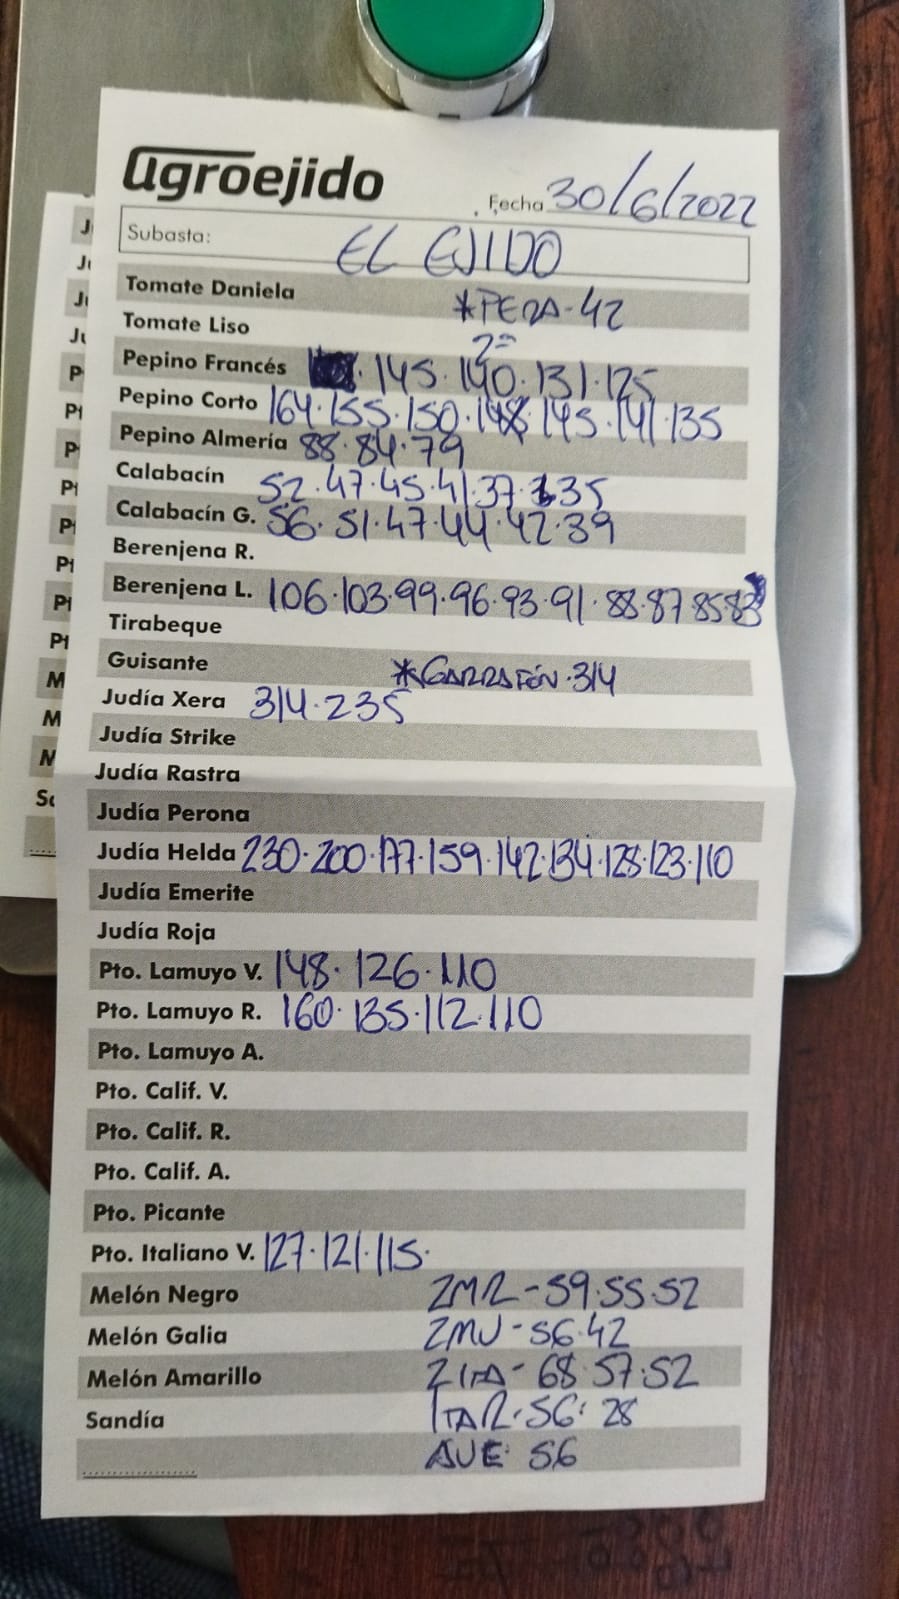 agroejido
Fecha 30/6/2022
Subasta: EL EJIDO
Tomate Daniela *PERA-42
Tomate Liso 2ª
Pepino Francés 145·140·131·125
Pepino Corto 164·155·150·148·145·141·135
Pepino Almería 88·84·79
Calabacín 52·47·45·41·37·35
Calabacín G. 56·51·47·44·42·39
Berenjena R.
Berenjena L. 106·103·99·96·93·91·88·87·85·83
Tirabeque
Guisante *GARRAFÓN·314
Judía Xera 314·235
Judía Strike
Judía Rastra
Judía Perona
Judía Helda 230·200·177·159·142·134·128·123·110
Judía Emerite
Judía Roja
Pto. Lamuyo V. 148·126·110
Pto. Lamuyo R. 160·135·112·110
Pto. Lamuyo A.
Pto. Calif. V.
Pto. Calif. R.
Pto. Calif. A.
Pto. Picante
Pto. Italiano V. 127·121·115·
Melón Negro 2MR-59·55·52
Melón Galia 2MU-56·42
Melón Amarillo 68·57·52
Sandía 1TAR·56·28
AUE· 56